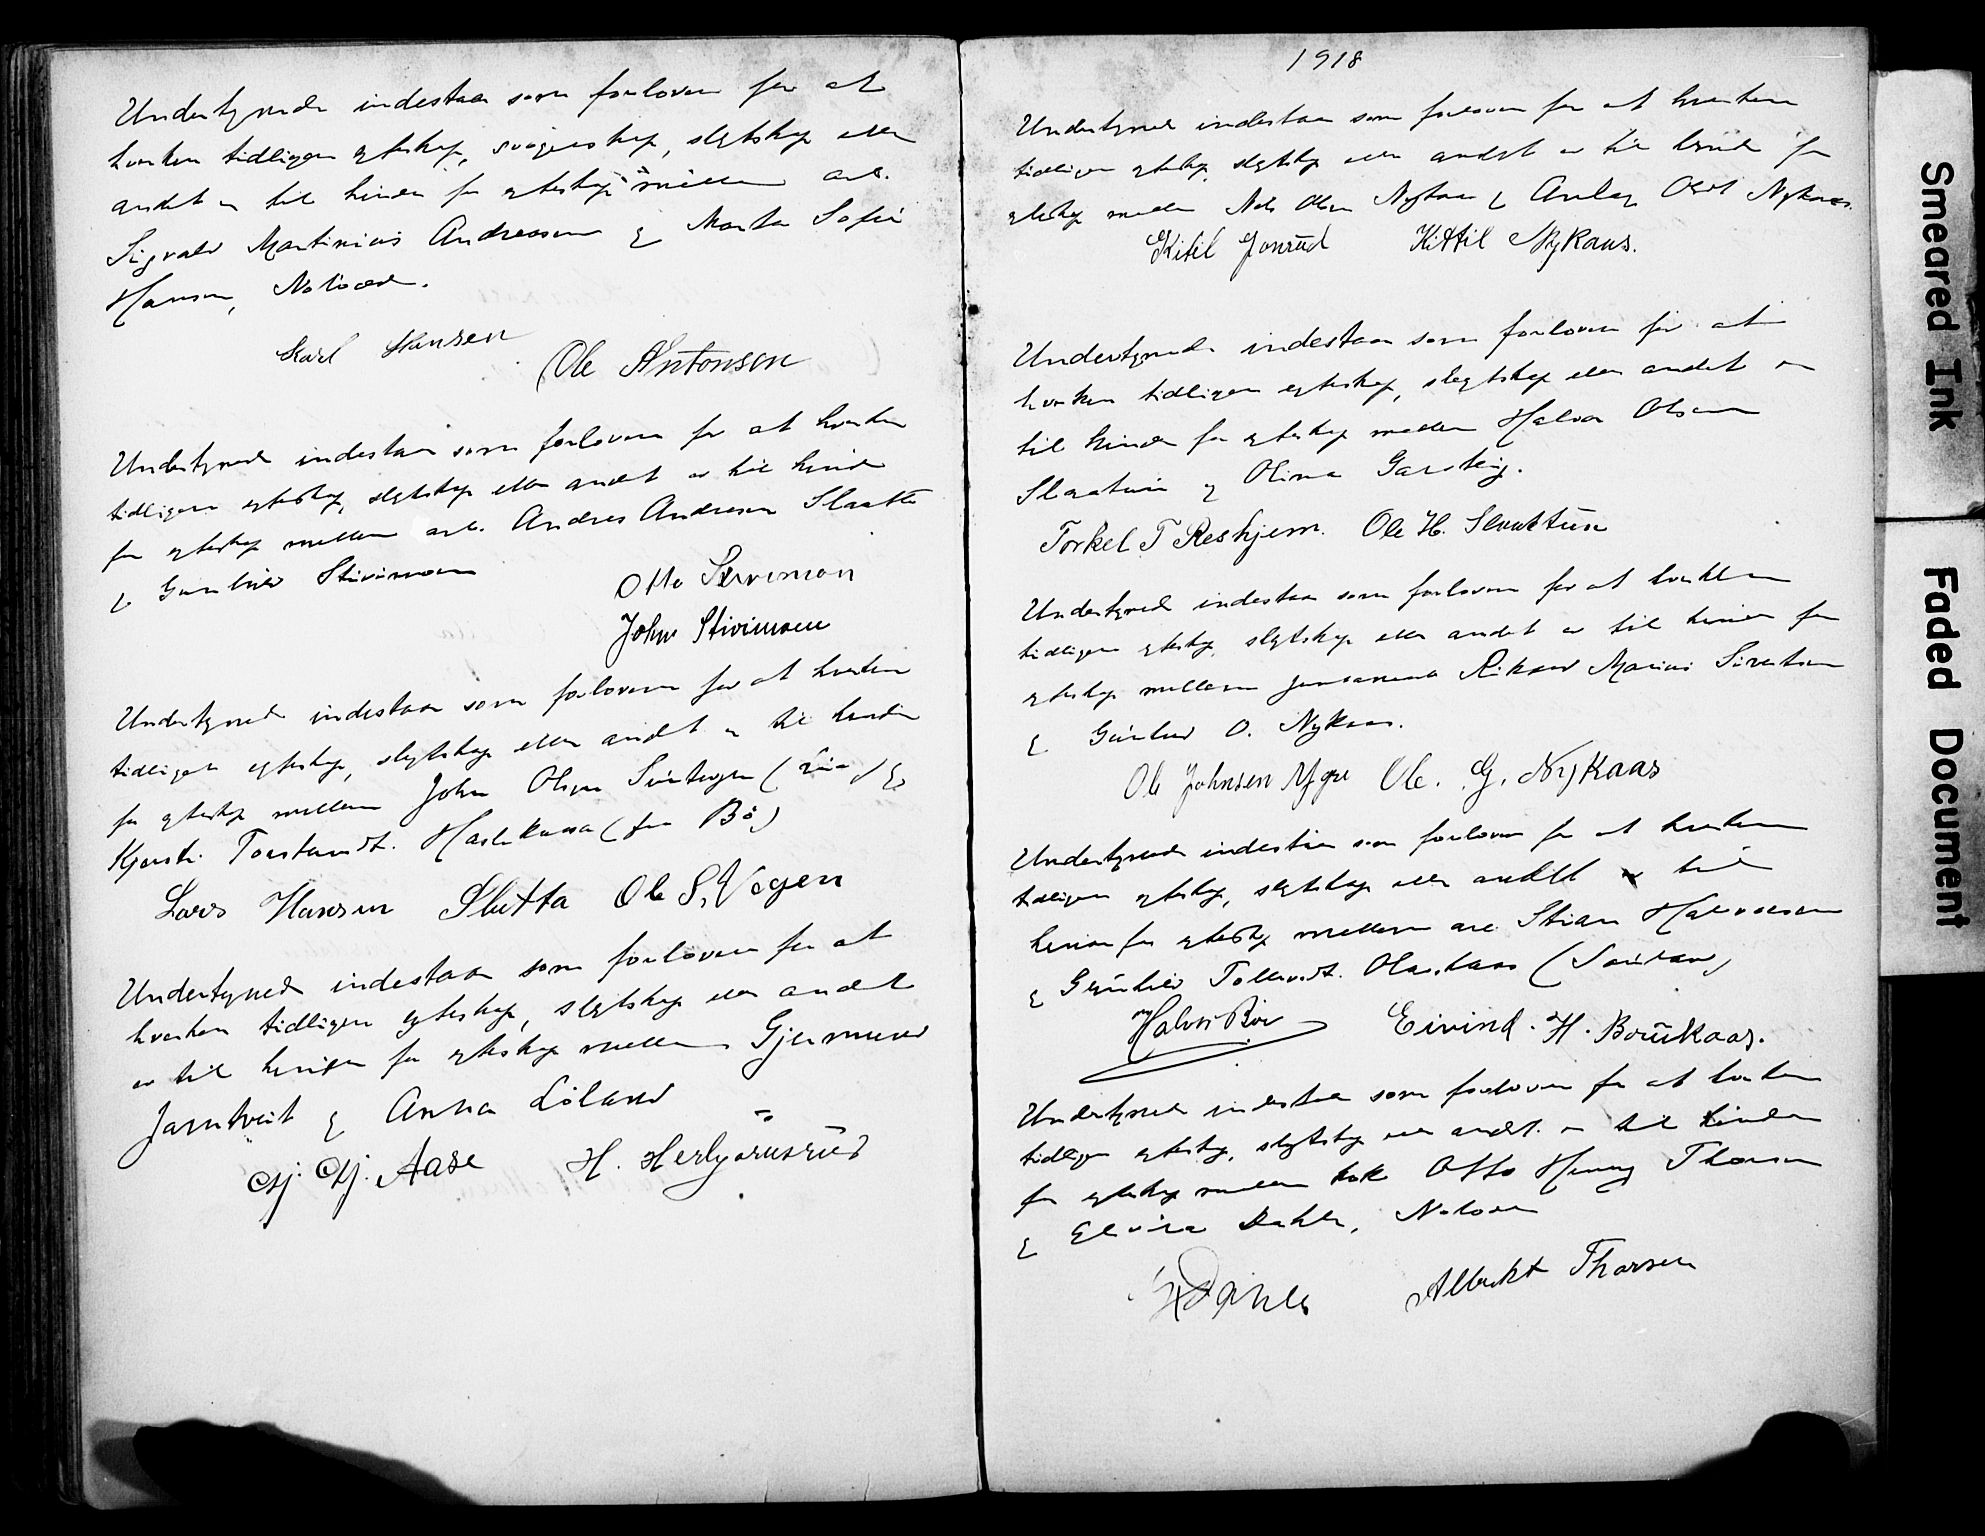 Undertegnede indestaar som forlovere for at
hverken tidligere egteskap, svogerskap, slegtskap eller
andet er til hinder for egteskap mellem arb.
Sigvald Martinius Andreassen & Marta Sofie
Hansen, Notodden.
Karl Hansen Ole Antonsen
Undertegnede indestaar som forlovere for at hverken
tidligere egteskap, slegtskap eller andet er til hinder
for egteskap mellem arb. Andres Andresen Slaatta
& Gunhild Stivimoen
Otto Stivimoen
John Stivimoen
Undertegnede indestaar som forlovere for at hverken
tidligere egteskap, slegtskap eller andet er til hinder
for egteskap mellem John Olsen &
Kjersti Torstensdt. (fra Bø)
Lars Hansen Sletta Ole S. Vegen
Undertegnede indestaar som forlovere for at
hverken tidligere egteskap, slegtskap eller andet
er til hinder for egteskap mellem Gjermund
Jarntveit & Anna Løland
Gj. Gj. Aase H.
1918
Undertegnede indestaar som forlovere for at hverken
tidligere egteskap, slegtskap eller andet er til hinder for
egteskap mellem Nils Olsen Nykaas & Aslaug Olsdt Nykaas.
Kitil Jonrud Kittil Nykaas.
Undertegnede indestaar som forlovere for at
hverken tidligere egteskap, slegtskap eller andet er
til hinder for egteskap mellem Halvor Olsen
Slaatun & Olina Garsteig.
Torkel T Reskjem. Ole H. Slaattun
Undertegnede indestaar som forlovere for at hverken
tidligere egteskap, slegtskap eller andet er til hinder for
egteskap mellem Rikard Marius Sivertsen
& Gunhild O. Nykaas.
Ole Johnsen Ygre Ole. G. Nykaas
Undertegnede indestaar som forlovere for at hverken
tidligere egteskap, slegtskap eller andet er til
hinder for egteskap mellem arb. Stian Halvorsen
& Gunhild Tollevsdt. (Sauland)
Halvor Bøe Eivind. H. Bøukaas.
Undertegnede indestaar som forlovere for at hverken
tidligere egteskap, slegtskap eller andet er til hinder
for egteskap mellem Otto Henry Thorsen
& Elvira Dahle, Notodden
Dahle Albert Thorsen
Smeared Ink
Faded Document